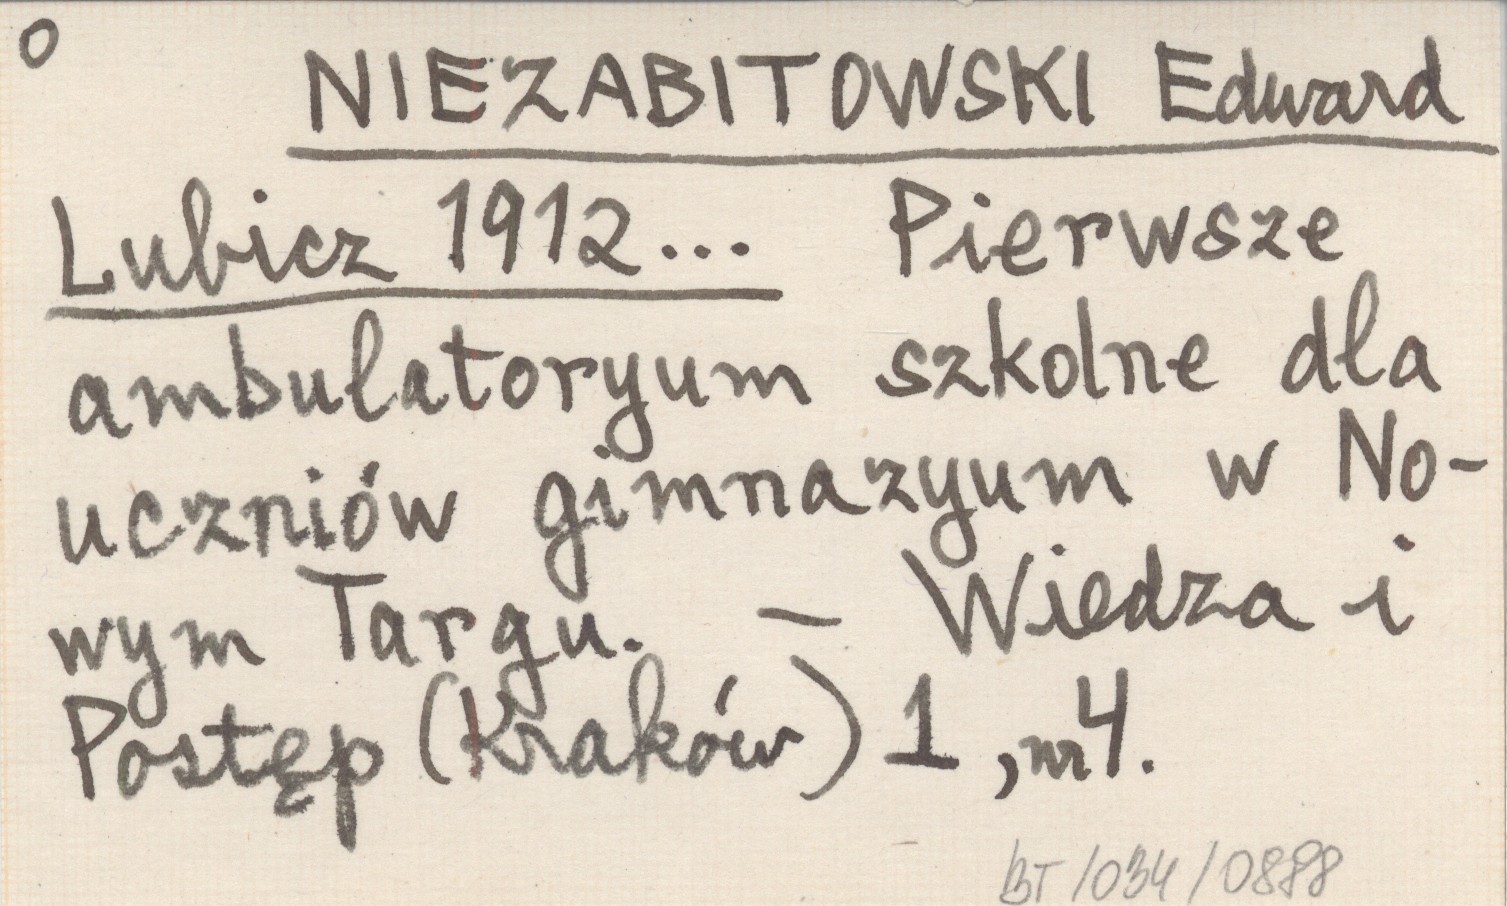 O
NIEZABITOWSKI Edward
Lubicz 1912... Pierwsze
ambulatoryum szkolne dla
uczniów gimnazyum w No-
wym Targu. — Wiedza i
Postęp (Kraków) 1, nr 4.
BT/034/0888